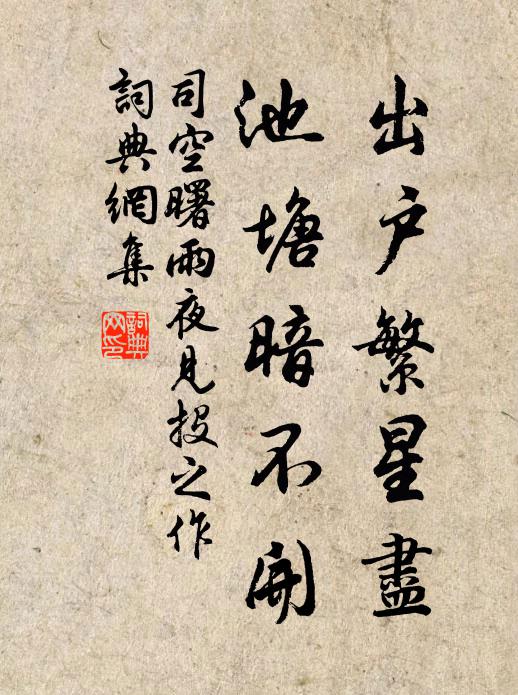 出户繁星盡
池塘暗不開
司空曙雨夜見投之作
詞典網集
詞典
网印